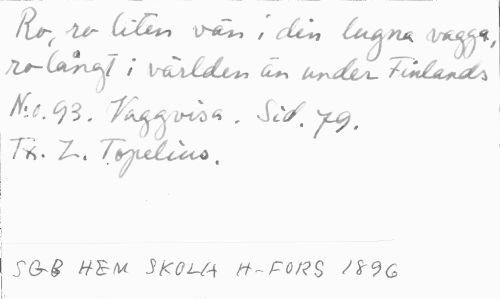 Ro, ro liten vän i din lugna vagga,
ro långt i världen än under Finlands
N:o. 93. Vaggvisa. Sid. 79.
Tx. Z. Topelius.
SGB HEM SKOLA H-FORS 1896